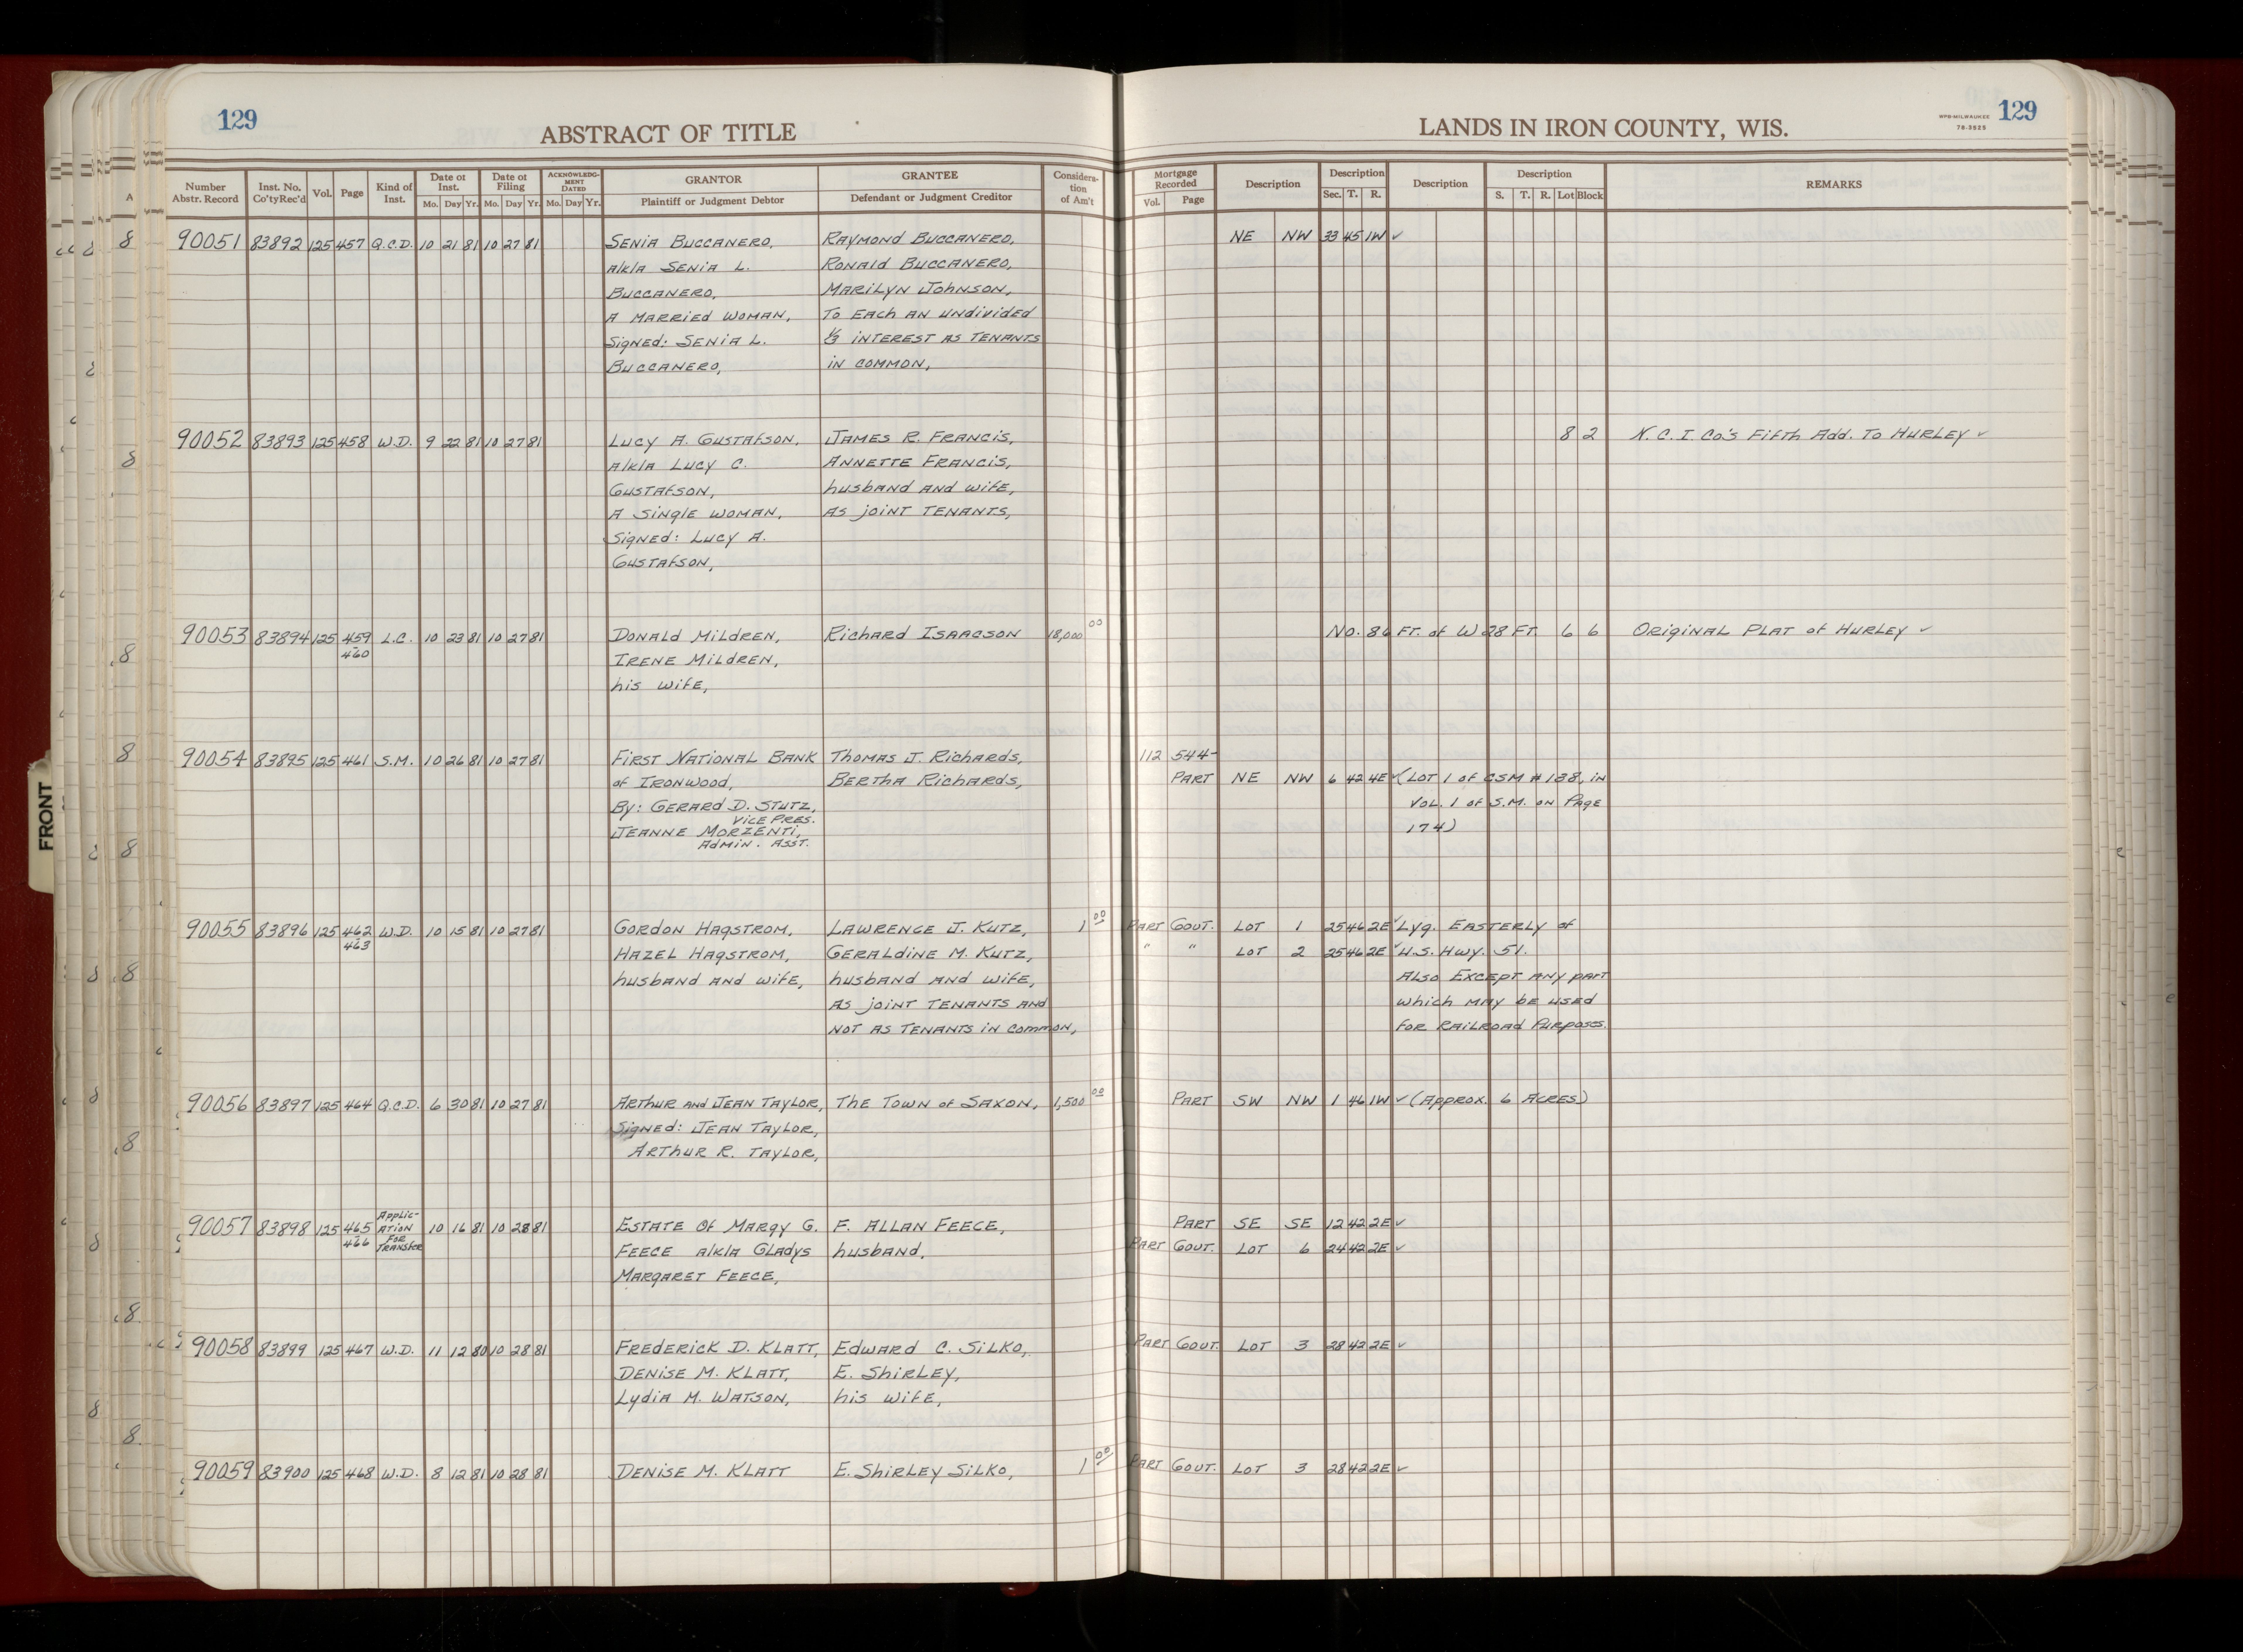 129
ABSTRACT OF TITLE
LANDS IN IRON COUNTY, WIS.
WPB-MILWAUKEE
78-2525
129
Number Abstr. Record | Inst. No. Co'ty Rec'd | Vol. | Page | Kind of Inst. | Date of Inst. Mo. Day Yr. | Date of Filing Mo. Day Yr. | ACKNOWLEDG-MENT DATED Mo. Day Yr. | GRANTOR Plaintiff or Judgment Debtor | GRANTEE Defendant or Judgment Creditor | Considera-tion of Am't | Mortgage Recorded Vol. Page | Description | Description Sec. T. R. | Description | Description S. T. R. Lot Block | REMARKS
90051 83892 125 457 Q.C.D. 10 21 81 10 27 81 Senia Buccanero, Raymond Buccanero, NE NW 33 45 1W ✓
a/k/a Senia L. Ronald Buccanero,
Buccanero, Marilyn Johnson,
A married woman, To Each an undivided
Signed: Senia L. 1/3 interest as tenants
Buccanero, in common,
90052 83893 125 458 W.D. 9 22 81 10 27 81 Lucy A. Gustafson, James R. Francis, 8 2 N.C.I. Co's Fifth Add. To Hurley ✓
a/k/a Lucy C. Annette Francis,
Gustafson, husband and wife,
A single woman, as joint tenants,
Signed: Lucy A.
Gustafson,
90053 83894 125 459 L.C. 10 23 81 10 27 81 Donald Mildren, Richard Isaacson 18,000 00 No. 86 Ft. of W 28 Ft. 6 6 Original Plat of Hurley ✓
-460 Irene Mildren,
his wife,
90054 83895 125 461 S.M. 10 26 81 10 27 81 First National Bank Thomas J. Richards, 112 544-
of Ironwood, Bertha Richards, Part NE NW 6 42 4E ✓ (Lot 1 of CSM # 138, in
By: Gerard D. Stutz, Vol. 1 of S.M. on Page
Vice Pres.
Jeanne Morzenti, 174)
Admin. Asst.
90055 83896 125 462 W.D. 10 15 81 10 27 81 Gordon Hagstrom, Lawrence J. Kutz, 1 00 Part Gout. Lot 1 25 46 2E ✓ Lyg. Easterly of
-463 Hazel Hagstrom, Geraldine M. Kutz, " " Lot 2 25 46 2E ✓ U.S. Hwy. 51.
husband and wife, husband and wife, Also Except any part
as joint tenants and which may be used
not as tenants in common, for Railroad Purposes.
90056 83897 125 464 Q.C.D. 6 30 81 10 27 81 Arthur and Jean Taylor, The Town of Saxon, 1,500 00 Part SW NW 1 46 1W ✓ (Approx. 6 Acres)
Signed: Jean Taylor,
Arthur R. Taylor,
90057 83898 125 465 Applic-ation for Transfer 10 16 81 10 28 81 Estate of Margy G. F. Allan Feece, Part SE SE 12 42 2E ✓
-466 Feece a/k/a Gladys husband, Part Gout. Lot 6 24 42 2E ✓
Margaret Feece,
90058 83899 125 467 W.D. 11 12 80 10 28 81 Frederick D. Klatt, Edward C. Silko, Part Gout. Lot 3 28 42 2E ✓
Denise M. Klatt, E. Shirley,
Lydia M. Watson, his wife,
90059 83900 125 468 W.D. 8 12 81 10 28 81 Denise M. Klatt E. Shirley Silko, 1 00 Part Gout. Lot 3 28 42 2E ✓
FRONT